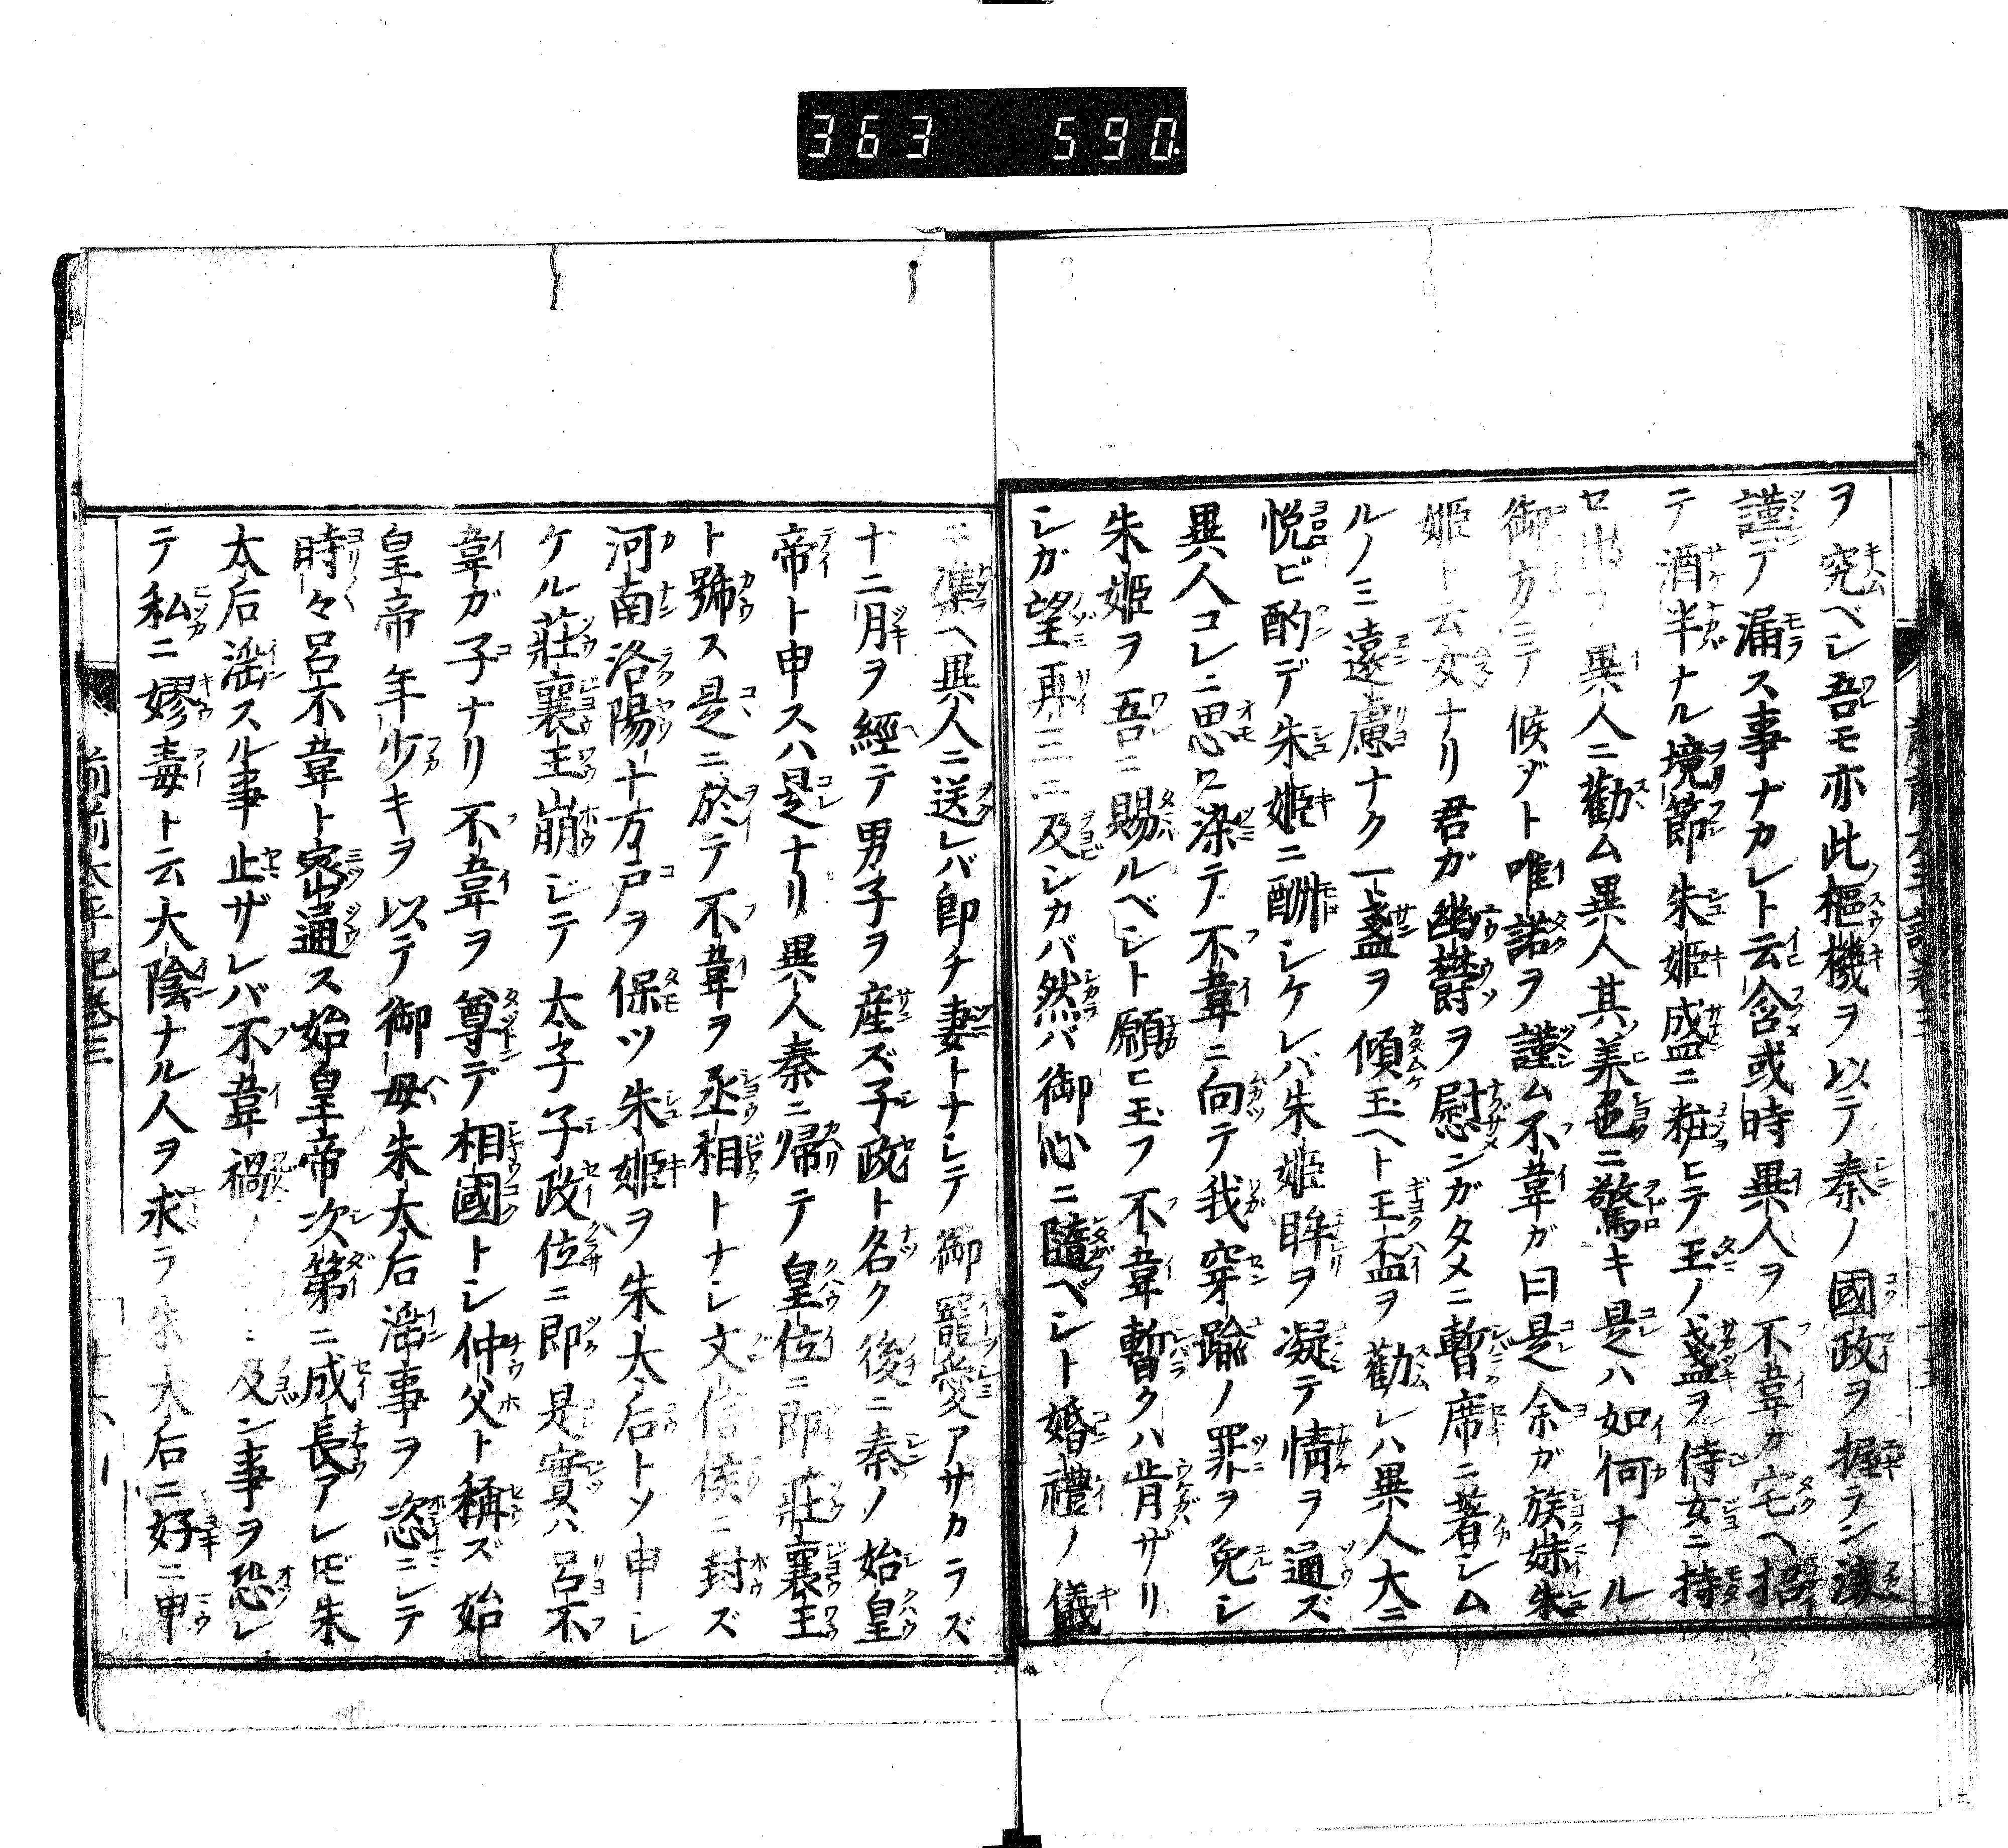 363 590
ヲ究ベシ吾モ亦此樞機ヲ以テ秦ノ國政ヲ握ラン
謹テ漏ス事ナカレト云含或時異人ヲ不韋カ宅ヘ招
テ酒半ナル境節朱姫盛ニ粧ヒテ玉ノ盞ヲ侍女ニ持
セ出テ異人ニ勸ム異人其美色ニ驚キ是ハ如何ナル
御方ニテ候ゾト唯諾ヲ謹ム不韋ガ曰是余ガ族妹朱
姫ト云女ナリ君ガ幽欝ヲ慰ンガタメニ暫席ニ著シム
ルノミ遠慮ナク一盞ヲ傾玉ヘト玉盃ヲ勸レハ異人大ニ
悦ビ酌デ朱姫ニ酬シケレバ朱姫眸ヲ凝テ情ヲ通ズ
異人コレニ思ヒ染テ不韋ニ向テ我穿踰ノ罪ヲ免シ
朱姫ヲ吾ニ賜ルベシト願ヒ玉フ不韋暫クハ肯ザリ
シガ望再三ニ及シカバ然バ御心ニ隨ベシト婚禮ノ儀
ヘ異人ニ送レバ即チ妻トナシテ御寵愛アサカラズ
十二月ヲ經テ男子ヲ産ズ子政ト名ク後ニ秦ノ始皇
帝ト申スハ是ナリ異人秦ニ歸テ皇位ニ即莊襄王
ト號ス是ニ於テ不韋ヲ丞相トナシ文信侯ニ封ズ
河南洛陽十万戸ヲ保ツ朱姫ヲ朱太后トソ申シ
ケル莊襄王崩ジテ太子子政位ニ即是實ハ呂不
韋ガ子ナリ不韋ヲ尊デ相國トシ仲父ト稱ズ始
皇帝年少キヲ以テ御母朱太后滛事ヲ恣ニシテ
時々呂不韋ト密通ス始皇帝次第ニ成長アレ𪜈朱
太后滛スル事止ザレバ不韋禍ノ ニ及ン事ヲ恐レ
テ私ニ嫪毒ト云大陰ナル人ヲ求ラ朱太后ニ好ニ申
前前太平記巻三